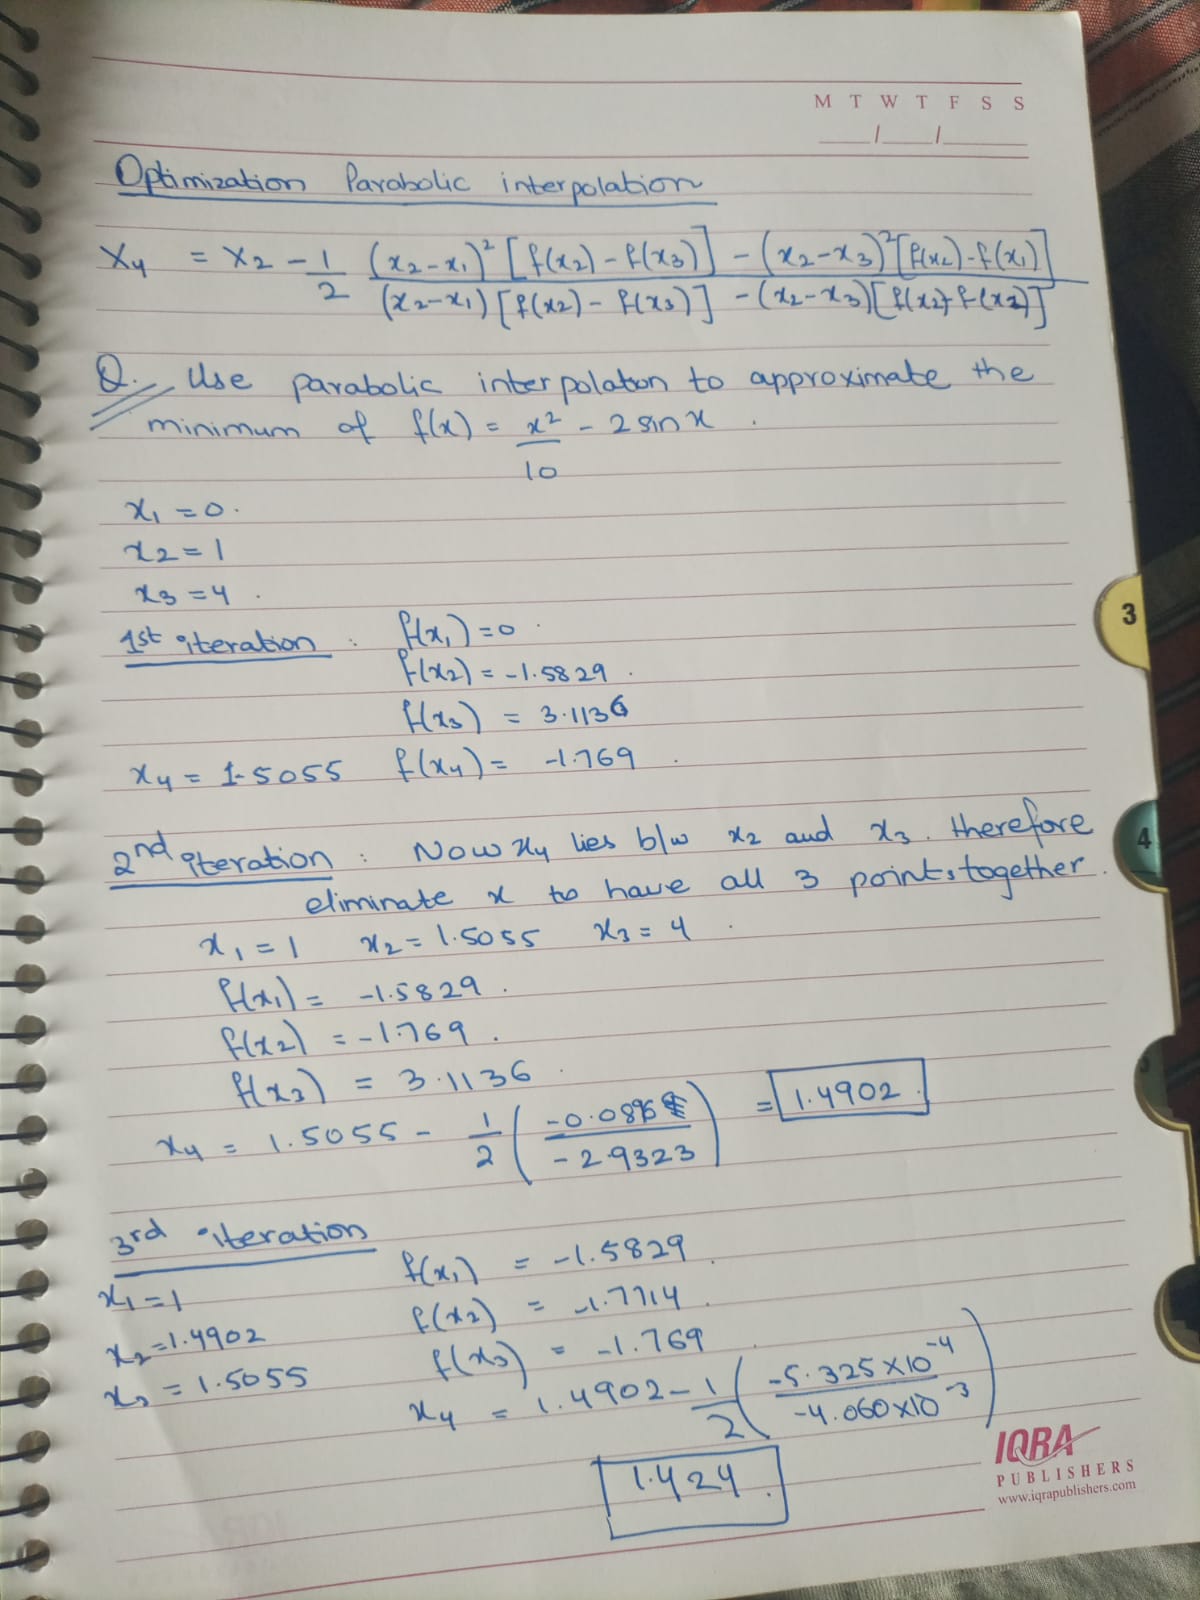 M T W T F S S
/ /
Optimization Parabolic interpolation
x₄ = x₂ - 1/2 (x₂-x₁)² [f(x₂) - f(x₃)] - (x₂-x₃)² [f(x₂) - f(x₁)] / (x₂-x₁) [f(x₂) - f(x₃)] - (x₂-x₃) [f(x₂)- f(x₂)]
Q. Use parabolic interpolaton to approximate the
minimum of f(x) = x²/10 - 2 sin x .
x₁ = 0.
x₂ = 1
x₃ = 4 .
3
1st iteration : f(x₁) = 0 .
f(x₂) = -1.5829 .
f(x₃) = 3.1136
x₄ = 1.5055 f(x₄) = -1.769 .
4
2nd iteration : Now x₄ lies b/w x₂ and x₃. therefore
eliminate x to have all 3 points together.
x₁ = 1 x₂ = 1.5055 x₃ = 4 .
f(x₁) = -1.5829 .
f(x₂) = -1.769 .
f(x₃) = 3.1136 .
x₄ = 1.5055 - 1/2 ( / -2.9323 ) = 1.4902 .
3rd iteration
x₁ = 1 f(x₁) = -1.5829 .
x₂ = 1.4902 f(x₂) = -1.7714 .
x₃ = 1.5055 f(x₃) = -1.769
x₄ = 1.4902 - 1/2 ( -5.325 × 10⁻⁴ / -4.060 × 10⁻³ )
1.424 .
IQRA
PUBLISHERS
www.iqrapublishers.com